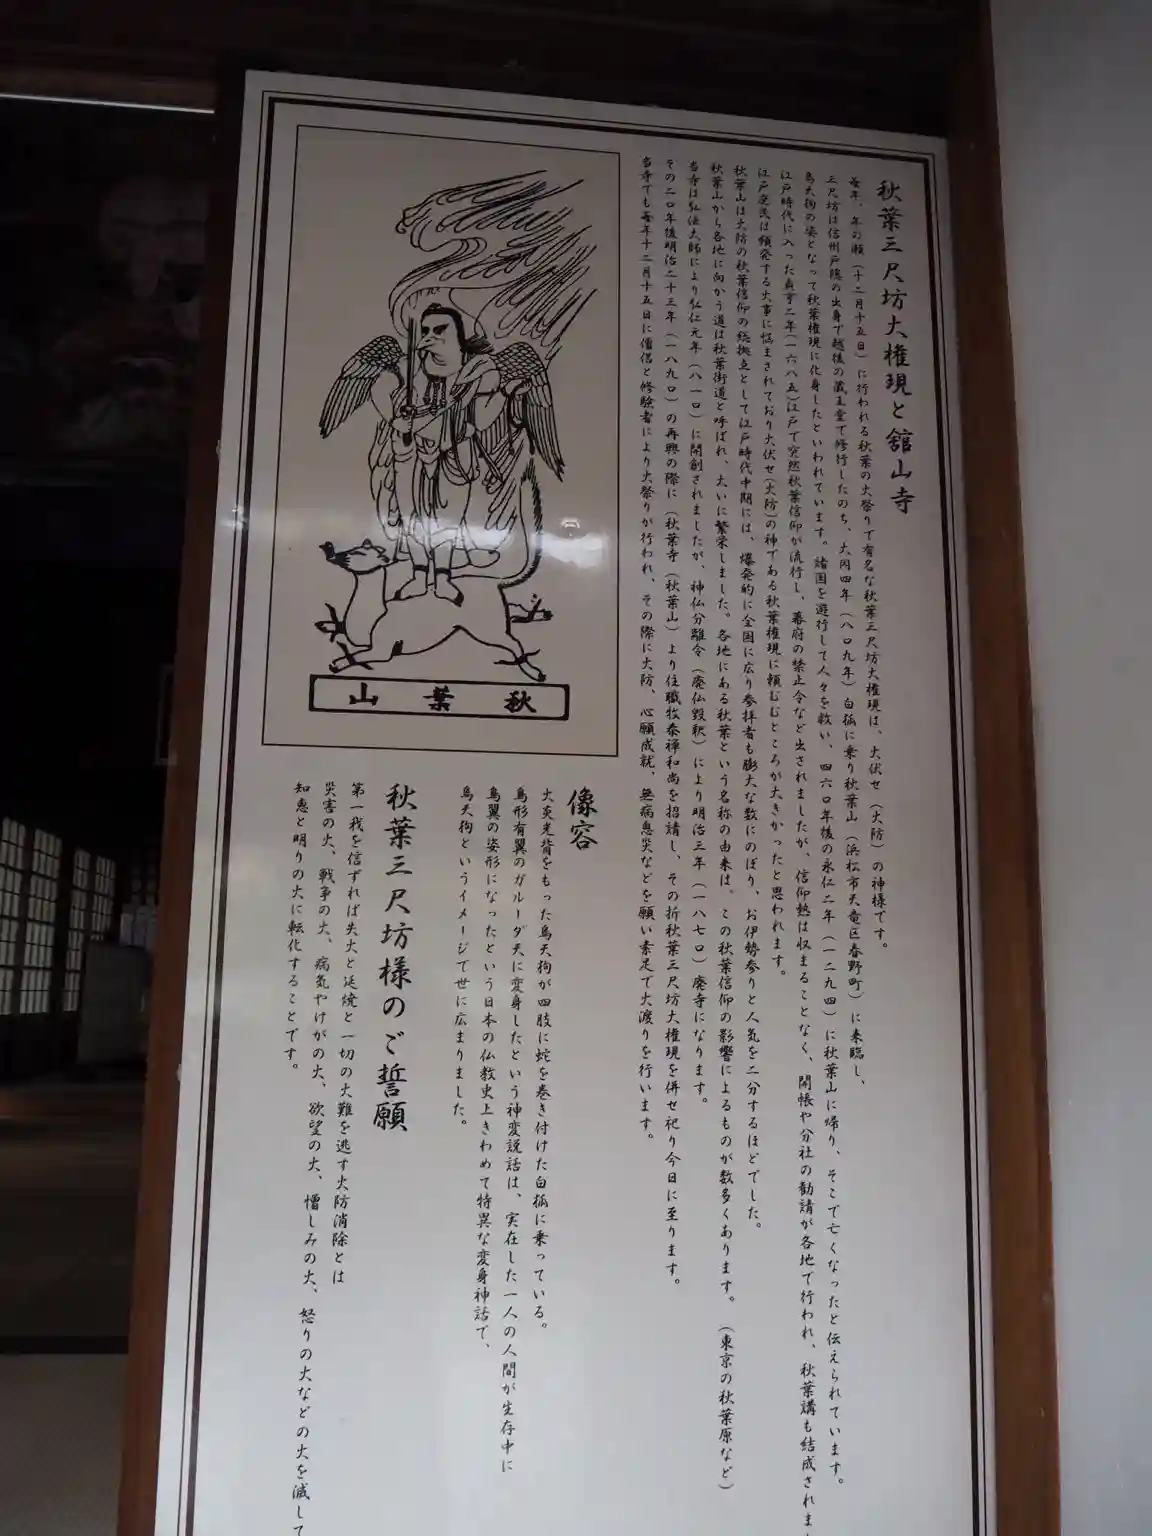 秋葉三尺坊大権現と舘山寺
毎年、年の瀬（十二月十五日）に行われる秋葉の火祭りで有名な秋葉三尺坊大権現は、火伏せ（火防）の神様です。
三尺坊は信州戸隠の出身で越後の蔵王堂で修行したのち、大同四年（八〇九年）白狐に乗り秋葉山（浜松市天竜区春野町）に来臨し、
烏天狗の姿となって秋葉権現に化身したといわれています。諸国を遊行して人々を救い、四六〇年後の永仁二年（一二九四）に秋葉山に帰り、そこで亡くなったと伝えられています。
江戸時代に入った貞享二年（一六八五）江戸で突然秋葉信仰が流行し、幕府の禁止令など出されましたが、信仰熱は収まることなく、開帳や分社の勧請が各地で行われ、秋葉講も結成されま
江戸庶民は頻発する火事に悩まされており火伏せ（火防）の神である秋葉権現に頼むむところが大きかったと思われます。
秋葉山は火防の秋葉信仰の総拠点として江戸時代中期には、爆発的に全国に広り参拝者も膨大な数にのぼり、お伊勢参りと人気を二分するほどでした。
秋葉山から各地に向かう道は秋葉街道と呼ばれ、大いに繁栄しました。各地にある秋葉という名称の由来は、この秋葉信仰の影響によるものが数多くあります。（東京の秋葉原など）
当寺は弘法大師により弘仁元年（八一〇）に開創されましたが、神仏分離令（廃仏毀釈）により明治三年（一八七〇）廃寺になります。
その二〇年後明治二十三年（一八九〇）の再興の際に（秋葉寺（秋葉山）より住職牧泰禅和尚を招請し、その折秋葉三尺坊大権現を併せ祀り今日に至ります。
当寺でも毎年十二月十五日に僧侶と修験者により火祭りが行われ、その際に火防、心願成就、無病息災などを願い素足で火渡りを行います。
秋葉山
像容
火炎光背をもった烏天狗が四肢に蛇を巻き付けた白狐に乗っている。
鳥形有翼のガルーダ天に変身したという神変説話は、実在した一人の人間が生存中に
鳥翼の姿形になったという日本の仏教史上きわめて特異な変身神話で、
烏天狗というイメージで世に広まりました。
秋葉三尺坊様のご誓願
第一我を信ずれば失火と延焼と一切の火難を逃す火防消除とは
災害の火、戦争の火、病気やけがの火、欲望の火、憎しみの火、怒りの火などの火を滅して
知恵と明りの火に転化することです。